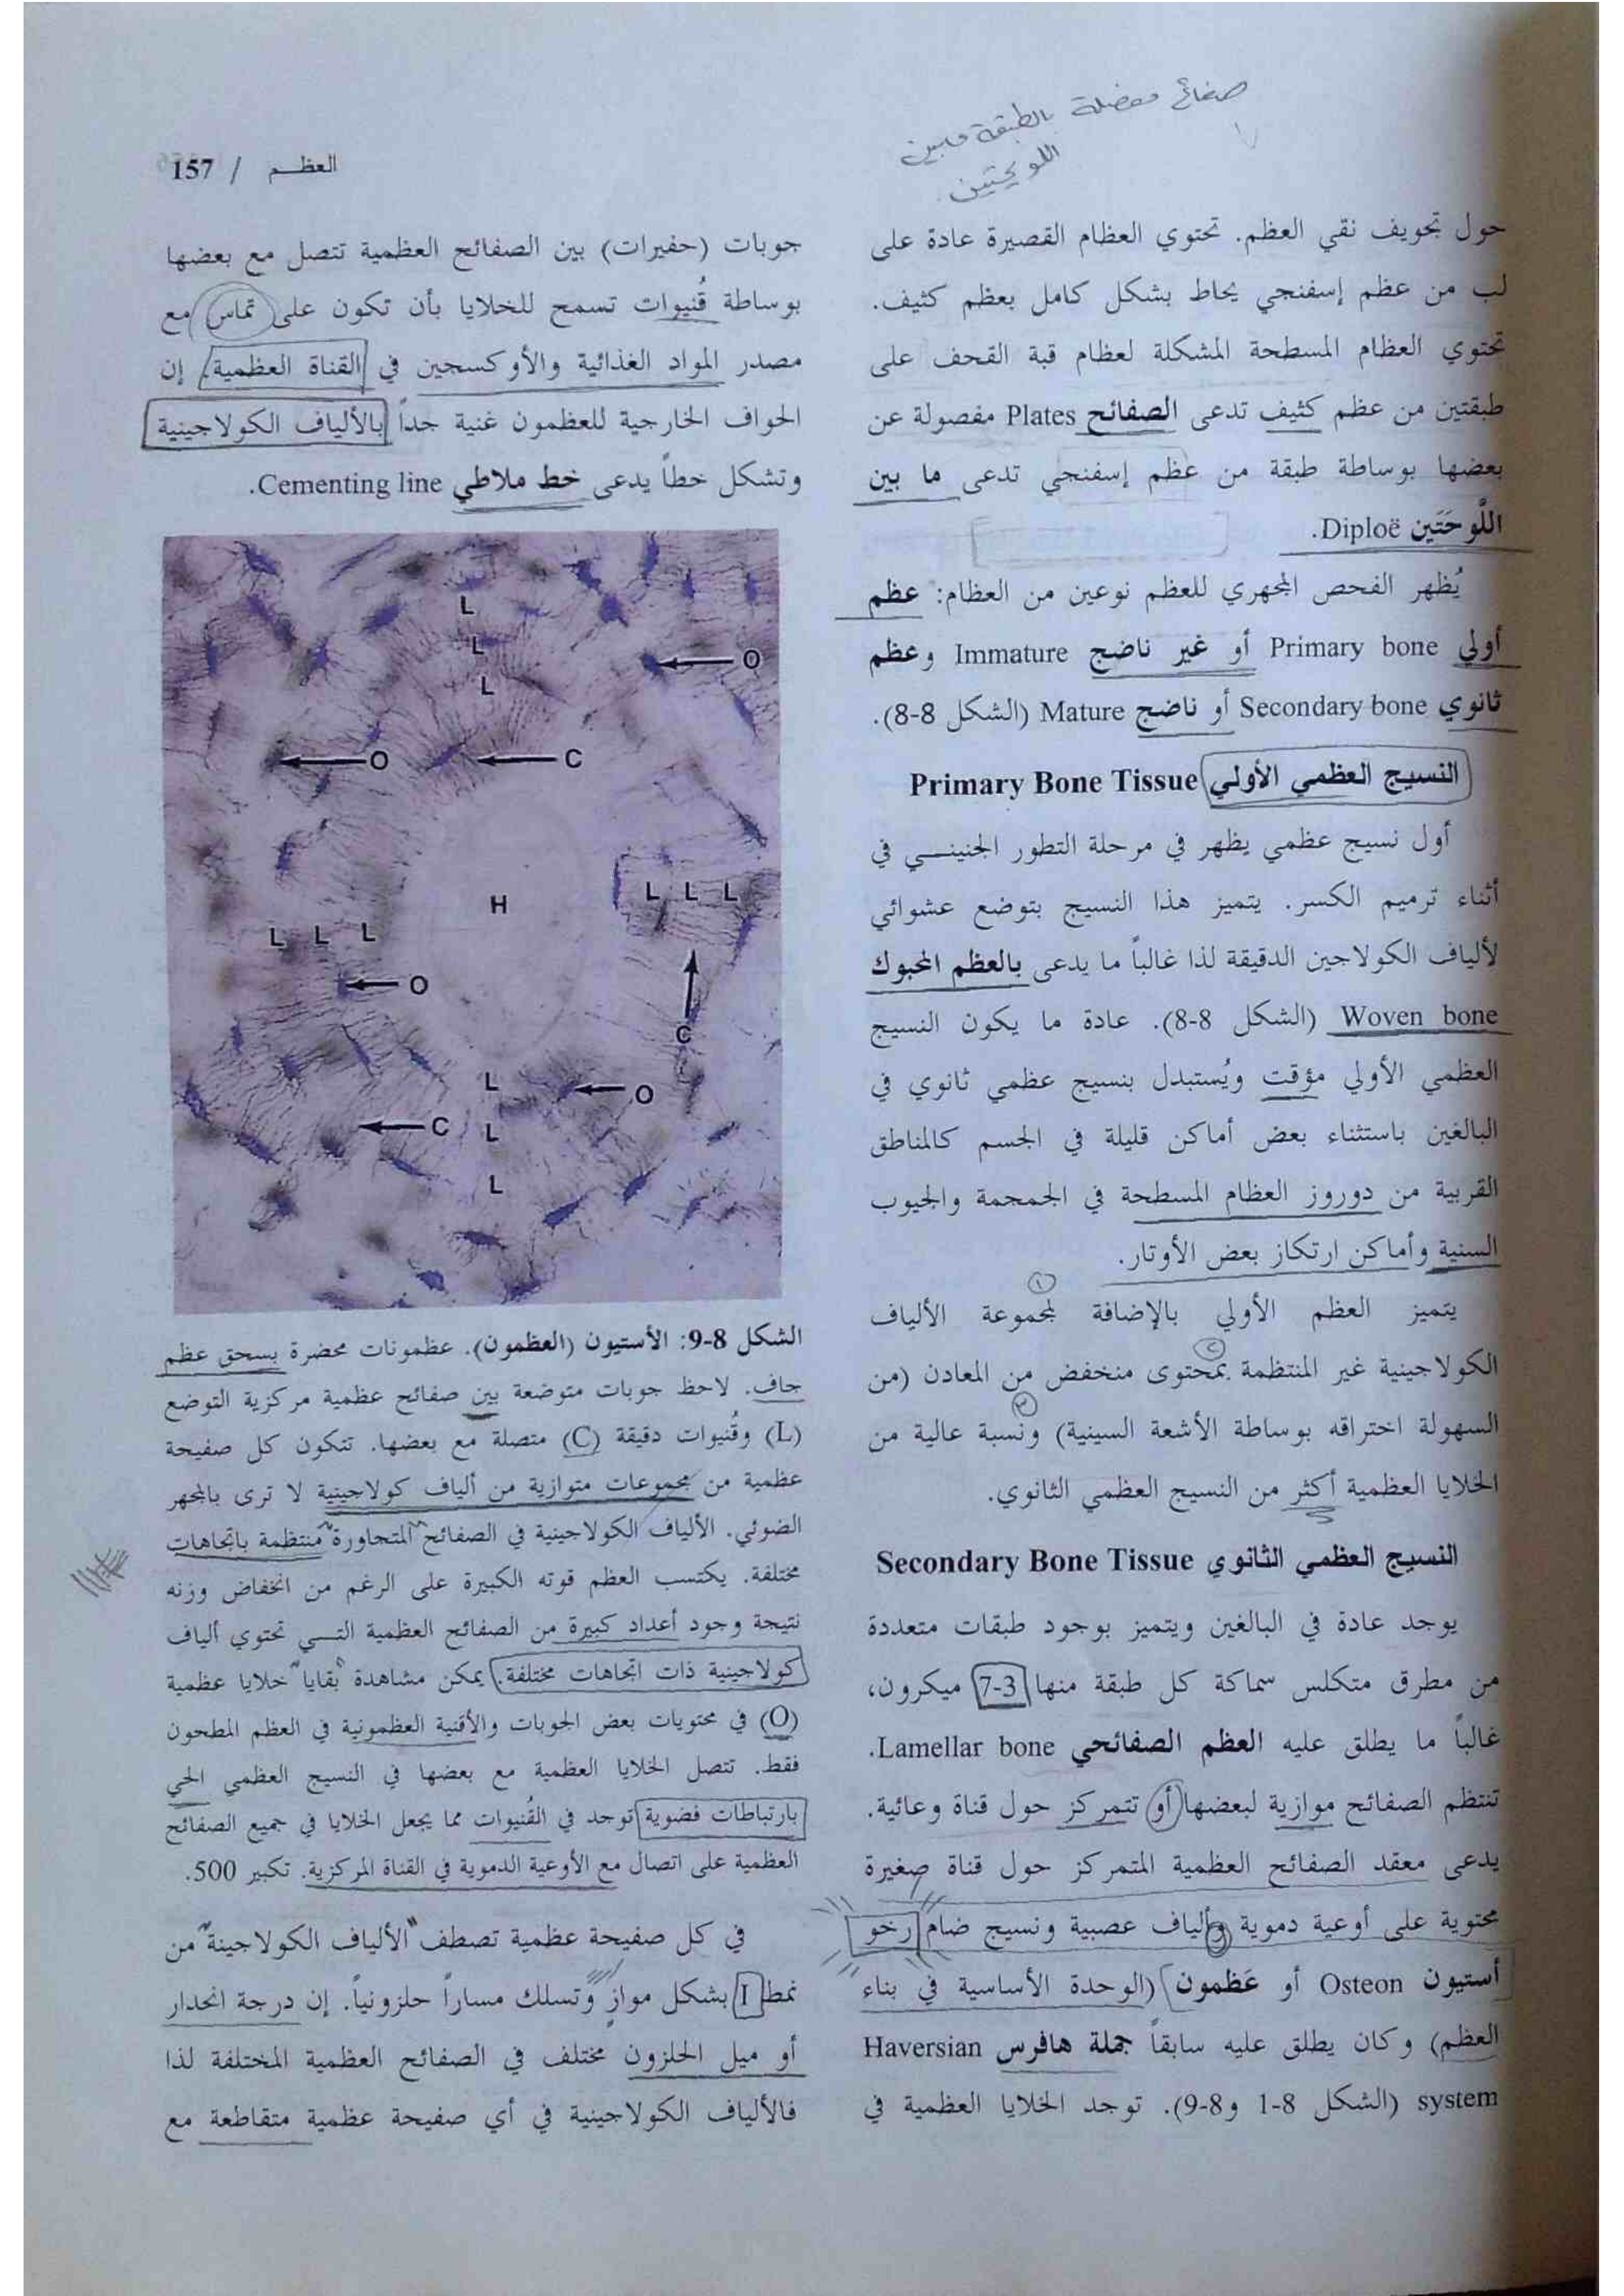 صفائح مفصلة بالطبقة مابين
اللويحتين
العظـم / 157
حول تجويف نقي العظم. تحتوي العظام القصيرة عادة على
لب من عظم إسفنجي يحاط بشكل كامل بعظم كثيف.
تحتوي العظام المسطحة المشكلة لعظام قبة القحف على
طبقتين من عظم كثيف تدعى الصفائح Plates مفصولة عن
بعضها بوساطة طبقة من عظم إسفنجي تدعى ما بين
اللَّوحَتَين Diploë.
يُظهر الفحص المجهري للعظم نوعين من العظام: عظم
أولي Primary bone أو غير ناضج Immature وعظم
ثانوي Secondary bone أو ناضج Mature (الشكل 8-8).
النسيج العظمي الأولي Primary Bone Tissue
أول نسيج عظمي يظهر في مرحلة التطور الجنينـــي في
أثناء ترميم الكسر. يتميز هذا النسيج بتوضع عشوائي
لألياف الكولاجين الدقيقة لذا غالباً ما يدعى بالعظم المحبوك
Woven bone (الشكل 8-8). عادة ما يكون النسيج
العظمي الأولي مؤقت ويُستبدل بنسيج عظمي ثانوي في
البالغين باستثناء بعض أماكن قليلة في الجسم كالمناطق
القريبة من دوروز العظام المسطحة في الجمجمة والجيوب
السنية وأماكن ارتكاز بعض الأوتار.
١
يتميز العظم الأولي بالإضافة لمجموعة الألياف
٢
الكولاجينية غير المنتظمة بمحتوى منخفض من المعادن (من
٣
السهولة اختراقه بوساطة الأشعة السينية) ونسبة عالية من
الخلايا العظمية أكثر من النسيج العظمي الثانوي.
النسيج العظمي الثانوي Secondary Bone Tissue
يوجد عادة في البالغين ويتميز بوجود طبقات متعددة
من مطرق متكلس سماكة كل طبقة منها 3-7 ميكرون،
غالباً ما يطلق عليه العظم الصفائحي Lamellar bone.
تنتظم الصفائح موازية لبعضها أو تتمركز حول قناة وعائية.
يدعى معقد الصفائح العظمية المتمركز حول قناة صغيرة
محتوية على أوعية دموية وألياف عصبية ونسيج ضام رخو
أستيون Osteon أو عَظمون (الوحدة الأساسية في بناء
العظم) وكان يطلق عليه سابقاً جملة هافرس Haversian
system (الشكل 8-1 و8-9). توجد الخلايا العظمية في
جوبات (حفيرات) بين الصفائح العظمية تتصل مع بعضها
بوساطة قُنيوات تسمح للخلايا بأن تكون على تماس مع
مصدر المواد الغذائية والأوكسجين في القناة العظمية. إن
الحواف الخارجية للعظمون غنية جداً بالألياف الكولاجينية
وتشكل خطاً يدعى خط ملاطي Cementing line.
L
L
O
L
O
C
L L L
H
L L L
O
C
L
O
C
L
L
الشكل 8-9: الأستيون (العظمون). عظمونات محضرة بسحق عظم
جاف. لاحظ جوبات متوضعة بين صفائح عظمية مركزية التوضع
(L) وقُنيوات دقيقة (C) متصلة مع بعضها. تتكون كل صفيحة
عظمية من مجموعات متوازية من ألياف كولاجينية لا ترى بالمجهر
الضوئي. الألياف الكولاجينية في الصفائح المتجاورة منتظمة باتجاهات
مختلفة. يكتسب العظم قوته الكبيرة على الرغم من انخفاض وزنه
نتيجة وجود أعداد كبيرة من الصفائح العظمية التـــي تحتوي ألياف
كولاجينية ذات اتجاهات مختلفة. يمكن مشاهدة بقايا خلايا عظمية
(O) في محتويات بعض الجوبات والأقنية العظمونية في العظم المطحون
فقط. تتصل الخلايا العظمية مع بعضها في النسيج العظمي الحي
بارتباطات فضوية توجد في القُنيوات مما يجعل الخلايا في جميع الصفائح
العظمية على اتصال مع الأوعية الدموية في القناة المركزية. تكبير 500.
في كل صفيحة عظمية تصطف الألياف الكولاجينة من
نمط I بشكل موازٍ وتسلك مساراً حلزونياً. إن درجة انحدار
أو ميل الحلزون مختلف في الصفائح العظمية المختلفة لذا
فالألياف الكولاجينية في أي صفيحة عظمية متقاطعة مع